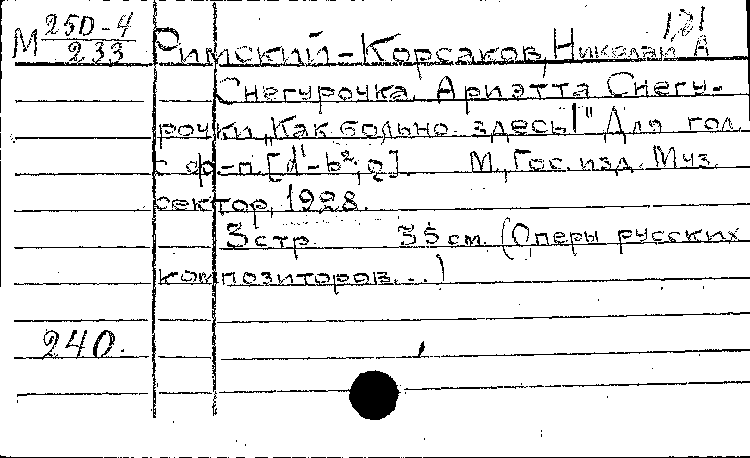 М 250-4/233 Римский-Корсаков, Николай А
Снегурочка. Ариэтта Снегу-
рочки „Как больно здесь!" Для гол.
с ф=п. [d¹-b²,g]. М., Гос. изд. Муз.
сектор, 1928.
3 стр. 35 см. (Оперы русских
композиторов...)
240.